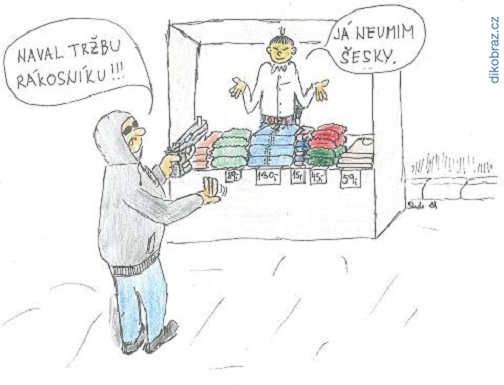 NAVAL TRŽBU
RÁKOSNÍKU!!!
JÁ NEUMIM
ŠESKY.
180,-
15,-
45,-
59,-
dikobraz.cz